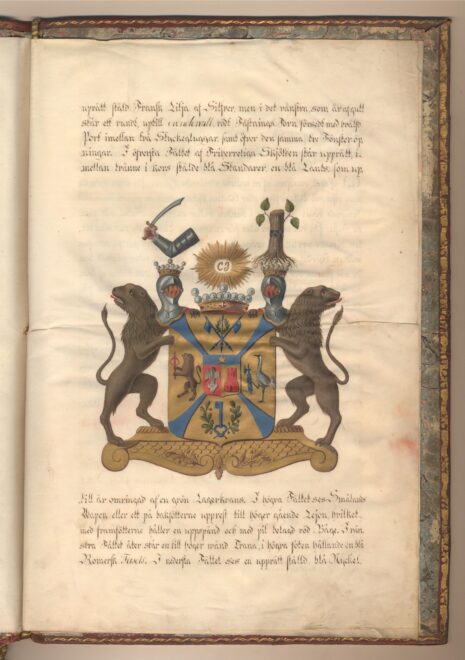 upprätt stäld Fransk Lilja af Silfver, men i det vänstra, som är af gult
står ett rundt, uptill creneleradt, rödt Fästnings Torn försedt med hvälfd
Port imellan två Styckegluggar, samt öfver den samma tre Fönsteröp-
ningar. I öfversta Fältet af Friherreliga Skölden står upprätt, i-
mellan tvänne i kors stälde blå Standarer, en blå Lants, som up-
CJ
till är omringad af en grön Lagerkrans. I högra Fältet ses Smålands
Wapen, eller ett på bakfötterne upprest till höger gående Lejon, hvilket
med framfötterne håller en uppspänd och med pil belagd röd Båge. I vän-
stra Fältet åter står en till höger wänd Trana, i högra foten hållande en blå
Romersk Fascis. I nedersta Fältet ses en upprätt stäld, blå Nyckel,